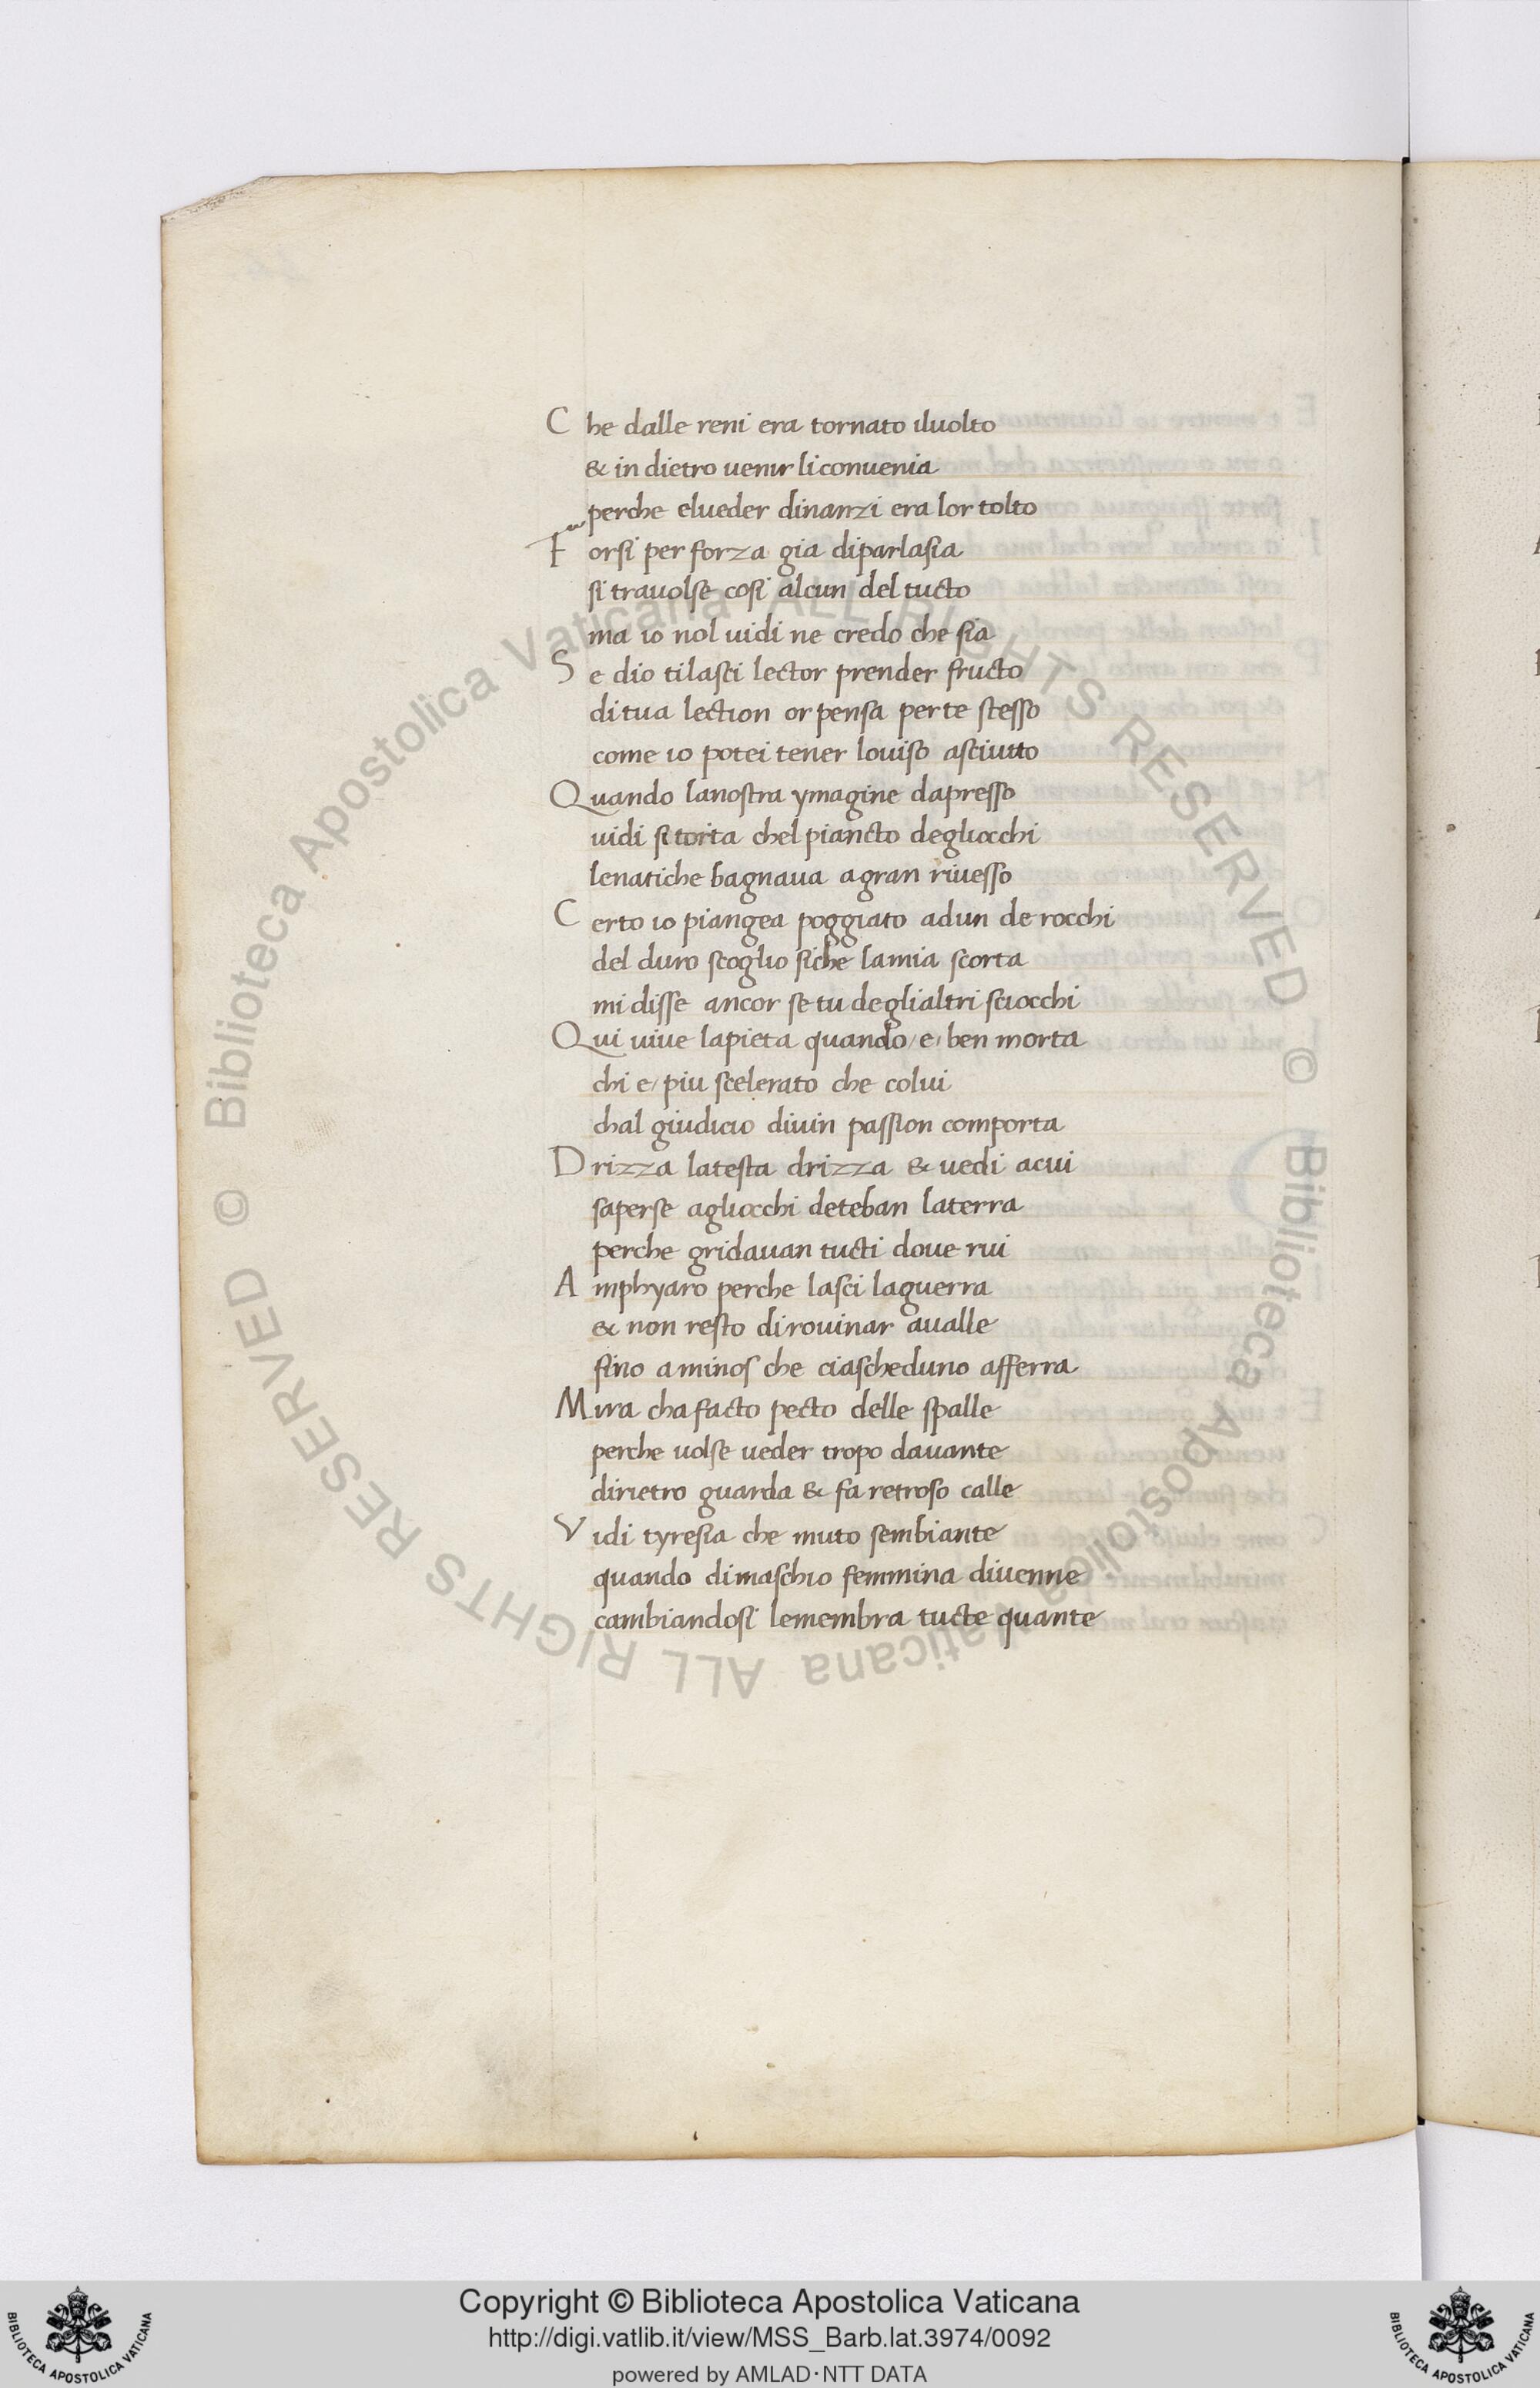 Che dalle reni era tornato iluolto
& in dietro uenir liconuenia
perche elueder dinanzi era lor tolto
Forsi per forza gia diparlasia
si trauolse cosi alcun del tucto
ma io nol uidi ne credo che sia
Se dio tilasci lector prender fructo
di tua lection or pensa per te stesso
come io potei tener louiso asciutto
Quando lanostra ymagine dapresso
uidi si torta chel piancto degliocchi
lenatiche bagnaua a gran riuesso
Certo io piangea poggiato adun de rocchi
del duro scoglio siche lamia scorta
mi disse ancor se tu deglialtri sciocchi
Qui uiue lapieta quando/e/ben morta
chi e/piu scelerato che colui
chal giudicio diuin passion comporta
Drizza latesta drizza & uedi acui
saperse agliocchi deteban laterra
perche gridauan tucti doue rui
Amphyaro perche lasci laguerra
& non resto dirouinar aualle
fino a minos che ciascheduno afferra
Mira cha facto pecto delle spalle
perche uolse ueder tropo dauante
dirietro guarda & fa retroso calle
Vidi tyresia che muto sembiante
quando dimaschio femmina diuenne
cambiandosi lemembra tucte quante
© Biblioteca Apostolica Vaticana ALL RIGHTS RESERVED
© Biblioteca Apostolica Vaticana ALL RIGHTS RESERVED
Copyright © Biblioteca Apostolica Vaticana
http://digi.vatlib.it/view/MSS_Barb.lat.3974/0092
powered by AMLAD·NTT DATA
BIBLIOTECA APOSTOLICA VATICANA
BIBLIOTECA APOSTOLICA VATICANA